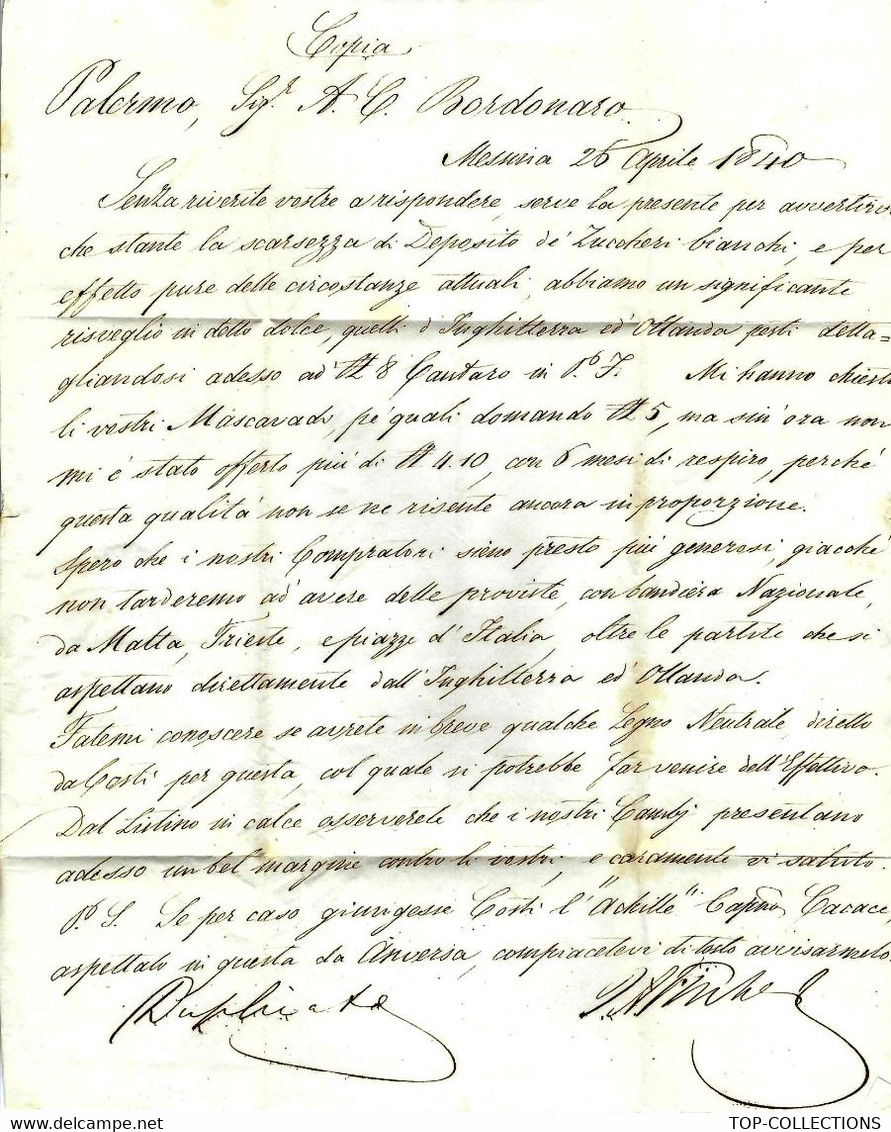 Copia
Palermo, Sigr. A. C. Bordonaro.
Messina 26 Aprile 1840
Senza riverite vostre a rispondere, serve la presente per avvertirvi
che stante la scarsezza di Deposito de' Zuccheri bianchi, e per
effetto pure delle circostanze attuali, abbiamo un significante
risveglio in detto dolce, quelli d'Inghilterra ed' Ollanda pesti detta=
gliandosi adesso ad' 8 Cantaro in P.o F. Mi hanno chiesto
li vostri Mascavadi, pe' quali domando 5, ma sin' ora non
mi é stato offerto piú di 4.10, con 6 mesi di respiro, perché
questa qualitá non se ne risente ancora in proporzione.
Spero che i nostri Compratori sieno presto piú generosi, giacché
non tarderemo ad' avere delle proviste, con bandiera Nazionale,
da Malta, Trieste, e piazze d' Italia, oltre le partite che si
aspettano direttamente dall' Inghilterra ed' Ollanda.
Fatemi conoscere se avrete in breve qualche Legno Neutrale, diretto
da Costi per questa, col quale si potrebbe far venire dell' Effettivo.
Dal Listino in calce osserverete che i nostri Cambj presentano
adesso un bel' margine contro li vostri, e caramente vi saluto.
P. S. Se per caso giungesse Costi l' "Achille" Capno. Cacace,
aspettato in questa da Anversa, compiacetevi di tosto avvisarmelo.
Duplicata
TOP-COLLECTIONS